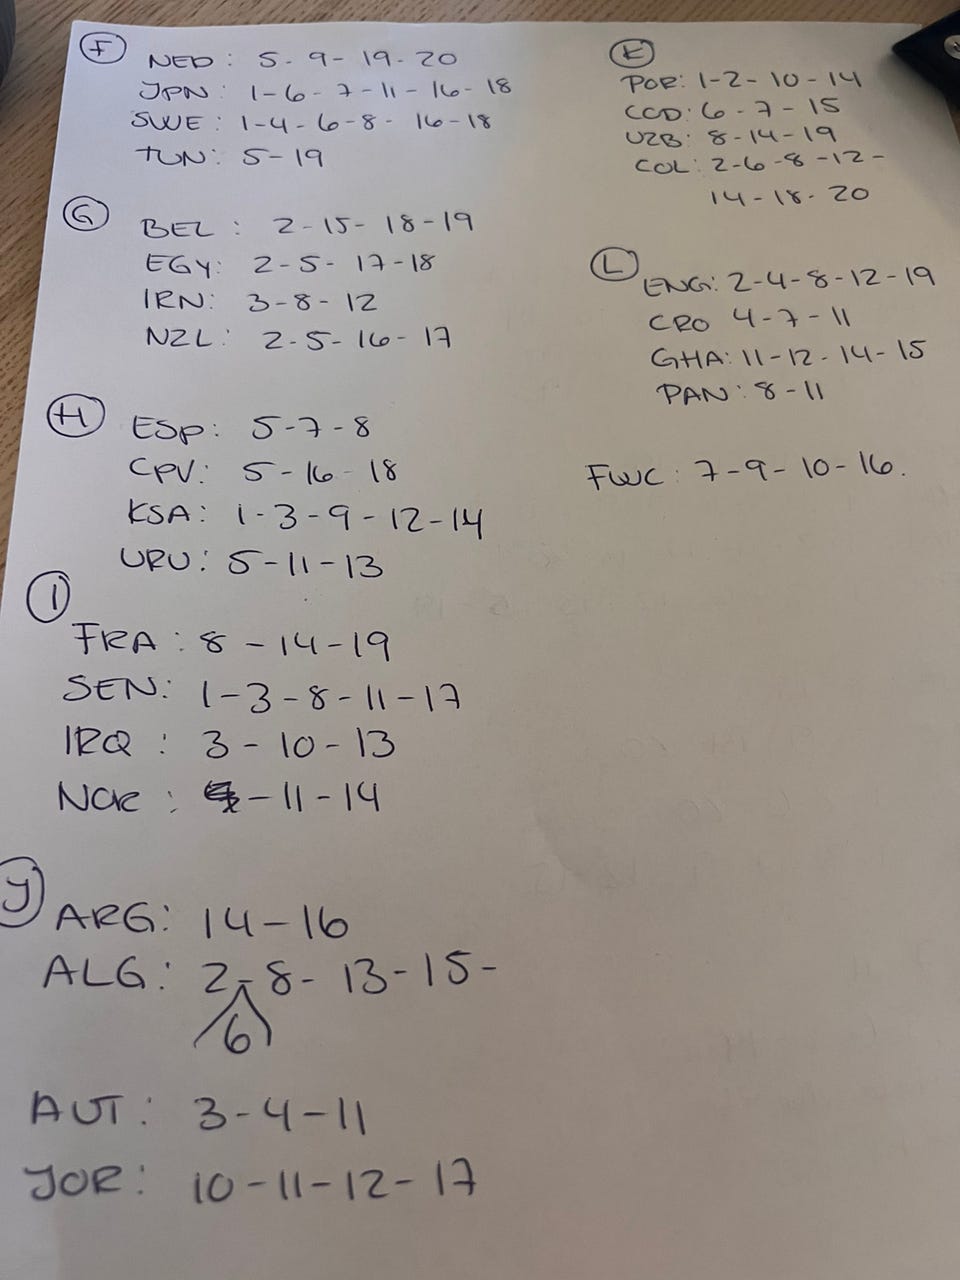 F
NED: 5-9-19-20
JPN: 1-6-7-11-16-18
SWE: 1-4-6-8-16-18
TUN: 5-19
G
BEL: 2-15-18-19
EGY: 2-5-17-18
IRN: 3-8-12
NZL: 2-5-16-17
H
ESP: 5-7-8
CPV: 5-16-18
KSA: 1-3-9-12-14
URU: 5-11-13
I
FRA: 8-14-19
SEN: 1-3-8-11-17
IRQ: 3-10-13
NOR: -11-14
J
ARG: 14-16
ALG: 2-8-13-15-
6
AUT: 3-4-11
JOR: 10-11-12-17
K
POR: 1-2-10-14
COD: 6-7-15
UZB: 8-14-19
COL: 2-6-8-12-
14-18-20
L
ENG: 2-4-8-12-19
CRO 4-7-11
GHA: 11-12-14-15
PAN: 8-11
FWC: 7-9-10-16.